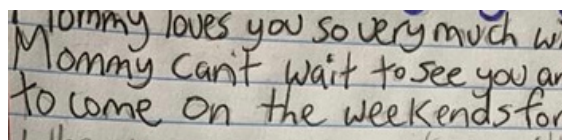 Mommy loves you so very much wi
Mommy can't wait to see you an
to come on the weekends for